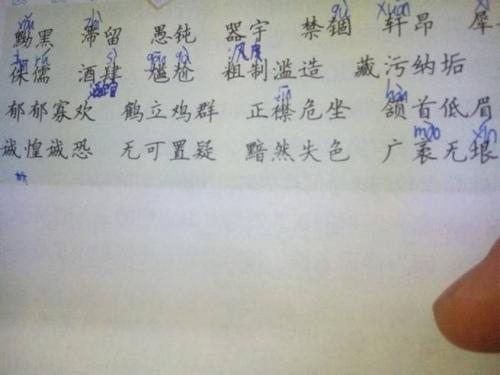 yǒu zhì gù xuān
黝黑 滞留 愚钝 器宇 禁锢 轩昂 犀
sì gān gà 风度
侏儒 酒肆 尴尬 粗制滥造 藏污纳垢
酒馆 jīn hàn
郁郁寡欢 鹤立鸡群 正襟危坐 颔首低眉
mào yín
诚惶诚恐 无可置疑 黯然失色 广袤无垠